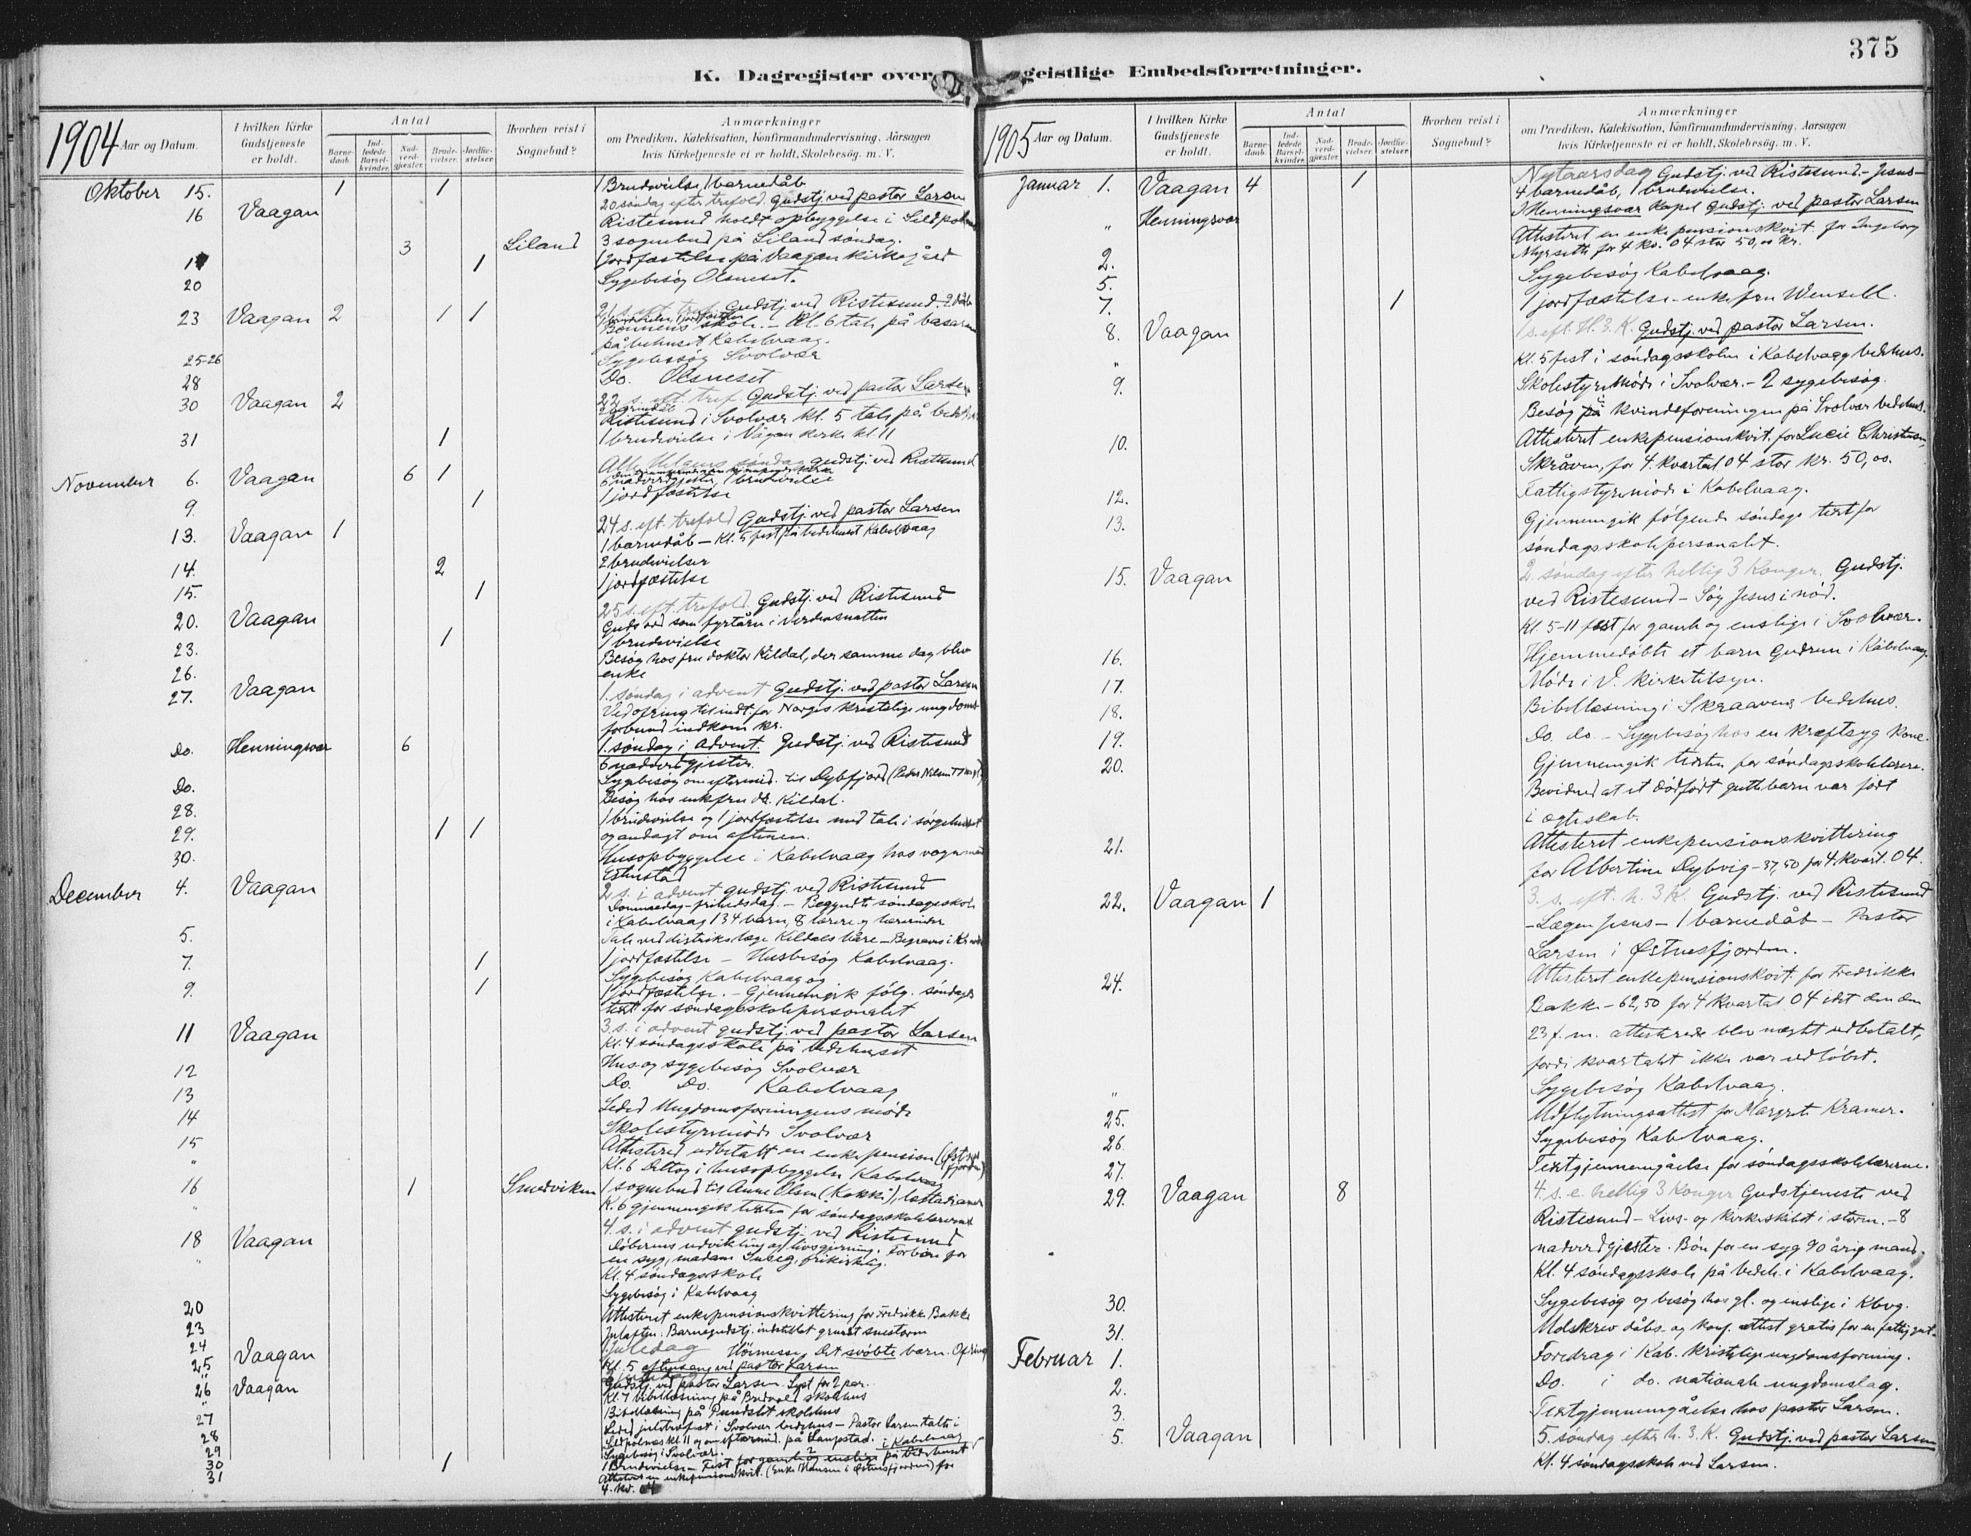 375
K. Dagregister over geistlige Embedsforretninger.
1904
Aar og Datum.
I hvilken Kirke Gudstjeneste er holdt.
Antal
Barnedaab.
Indledede Barselkvinder.
Nadverdgjester.
Brudevielser.
Jordfæstelser.
Hvorhen reist i Sognebud?
Anmærkninger
om Prædiken, Katekisation, Konfirmandundervisning, Aarsagen
hvis Kirketjeneste ei er holdt, Skolebesøg, m. V.
Oktober 15. 1 1 1 Brudevielse 1 barnedåb
16 Vaagan 20 søndag efter trefold. Gudstj. ved pastor Larsen
Ristesund holdt opbyggelse i Sildpolnes
3 Liland 3 sognebud på Liland søndag.
1 1 jordfæstelse på Vaagan kirkegård
20 Sygebesøg Olsneset.
23 Vaagan 2 1 1 21 s. eft. tref. Gudstj. ved Ristesund. 2 dåb
1 brudevielse 1 jordfæstelse
Børnenes skole. - Kl. 6 tale på basaren
på behuset Kabelvaag.
25-26 Sygebesøg Svolvær
28 Do. Olsneset
30 Vaagan 2 22 s. eft. tref. Gudstj. ved pastor Larsen
Ristesund i Svolvær kl. 5 tale på
31 1 1 brudevielse i Vågan kirke kl. 11
November 6. Vaagan 6 1 Alle Helgens søndag gudstj. ved Ristesund
6 nadverdgjester, 1 brudevielse
9. 1 1 jordfæstelse
13. Vaagan 1 24 s. eft. trefold Gudstj. ved pastor Larsen
1 barnedåb - Kl. 5 fest på bedehuset Kabelvaag
14. 2 2 brudevielser
15. 1 1 jordfæstelse
20. Vaagan 25 s. eft. trefold. Gudstj. ved Ristesund
Guds ord som fyrtårn i Verdensnatten
23. 1 1 brudevielse
26. Besøg hos fru doktor Kildal, der samme dag blev
enke
27. Vaagan 1. søndag i advent Gudstj. ved pastor Larsen
Ved ofring til indt. for Norges kristelige ungdoms-
forbund indkom kr.
Do. Henningsvær 6 1. søndag i Advent. Gudstj. ved Ristesund
6 nadverdgjester.
Do. Sygebesøg om eftermid. til Dybfjord
28. Besøg hos enkefru dr. Kildal.
29. 1 1 1 brudevielse og 1 jordfæstelse med tale i sørgehuset
og andagt om aftenen.
30. Husopbyggelse i Kabelvaag hos
December 4. Vaagan 2 s. i advent gudstj. ved Ristesund
Dommedag - frihedsdag. - Begyndte søndagsskole
i Kabelvaag 134 barn, 8 lærere og lærerinder
5. Tale ved distriktslæge Kildals båre -
7. 1 1 jordfæstelse - Husbesøg Kabelvaag.
Sygebesøg Kabelvaag og
9. 1 1 jordfæstelse. - Gjennemgik følg. søndags
text for søndagsskolepersonalet
11 Vaagan 3. s. i advent gudstj. ved pastor Larsen
Kl. 4 søndagsskole på bedehuset
12 Hus og sygebesøg Svolvær
13 Do. Do. Kabelvaag
14 Leded Ungdomsforeningens møde
15 Skolestyremøde Svolvær
" Attestered udbetalt en enkepension
Kl. 6 Deltog i husopbyggelse Kabelvaag
16 1 Smedviken 1 sognebud til Anne Olsen
" K. 6 gjennemgik texten for søndagsskolelærerne
18 Vaagan 4. s. i advent gudstj. ved Ristesund
Døberens udvikling og livsgjerning. Forbøn for
" en syg, madam
Kl. 4 søndagsskole
20 Sygebesøg i Kabelvaag
23 Attesteret enkepensionskvittering for Fredrikke Bakke
24 Juleaften: Barnegudstj. indstillet grundet snestorm
25 Vaagan Juledag Høimesse. Det svøbte barn. Ofring
" Kl. 5 aftensang ved pastor Larsen
26 Vaagan Gudstj. ved pastor Larsen. Lyst for 2 par.
" Kl. 7 bibellæsning på skolehus
27 Bibellæsning på skolehus
28 Leded juletræfest i Svolvær bedehus - Pastor Larsen talte i
Sildpolnes kl. 11 og om eftermid. på
29 Sygebesøg i Svolvær.
30 1 1 Brudevielse - Fest for gamle og enslige på bedehuset i Kabelvaag
31 Attesteret en enkepensionskvit. (Enke Hansen i Østnesfjorden) for
4. kv. 04
1905
Aar og Datum.
I hvilken Kirke Gudstjeneste er holdt.
Antal
Barnedaab.
Indledede Barselkvinder.
Nadverdgjester.
Brudevielser.
Jordfæstelser.
Hvorhen reist i Sognebud?
Anmærkninger
om Prædiken, Katekisation, Konfirmandundervisning, Aarsagen
hvis Kirketjeneste ei er holdt, Skolebesøg, m. V.
Januar 1. Vaagan 4 1 Nytaarsdag Gudstj. ved Ristesund. - Jesus -
4 barnedåb, 1 brudevielse.
" Henningsvær I Henningsvær kapel Gudstj. ved pastor Larsen
2. Attesteret en enkepensionskvit. for Ingeborg
Myrseth for 4 kv. 04 stor 50,00 kr.
5. Sygebesøg Kabelvaag.
7. 1 1 jordfæstelse - enkefru Wensell.
8. Vaagan 1 s. eft. H. 3. K. Gudstj. ved pastor Larsen.
" Kl. 5 fest i søndagsskolen i Kabelvaag bedehus.
9. Skolestyremøde i Svolvær. - 2 sygebesøg.
Besøg på kvindeforeningen på Svolvær bedehus.
10. Attesteret enkepensionskvit. for Lucie Christensen
Skråven, for 4. kvartal 04 stor kr. 50,00.
12. Fattigstyremøde i Kabelvaag.
13. Gjennemgik følgende søndags text for
søndagsskolepersonalet.
15. Vaagan 2. søndag efter hellig 3 Konger. Gudstj.
ved Ristesund - Søg Jesus i nød.
Kl. 5-11 fest for gamle og enslige i Svolvær.
16. Hjemmedøbte et barn Gudrun i Kabelvaag.
17. Møde i V. kirketilsyn.
18. Bibellæsning i Skraavens bedehus.
19. Do. do. - Sygebesøg hos en kræftsyg kone.
20. Gjennemgik texten for søndagsskolelærere.
Bevidned at et dødfødt guttebarn var født
i ægteskab.
21. Attesteret enkepensionskvittering
for Albertine Dybvig - 37,50 for 4. kvart. 04.
22. Vaagan 1 3. s. eft. h. 3 K. Gudstj. ved Ristesund
- Lægen Jesus - 1 barnedåb - Pastor
Larsen i Østnesfjorden.
24. Attesteret enkepensionskvit. for Fredrikke
Bakk - 62,50 for 4 kvartal 04 idet den den
23 f. m. attesterede blev nægtet udbetalt,
fordi kvartalet ikke var udløbet.
" Sygebesøg Kabelvaag.
25. Udflytningsattest for Margret Kramer.
26 Sygebesøg Kabelvaag.
27. Textgjennemgåelse for søndagsskolelærerne.
29. Vaagan 8 4. s. e. hellig 3 Konger Gudstjeneste ved
Ristesund - Livs- og kirkeskibet i storm. - 8
nadverdgjester. Bøn for en syg 90 årig mand.
Kl. 4 søndagsskole på bedeh. i Kabelvaag.
30. Sygebesøg og besøg hos gl. og enslige i Kbvg.
31. Udskrev dåbs- og konf. attest gratis for en fattig gut.
Februar 1. Foredrag i Kab. kristelige ungdomsforening.
2. Do. i do. nationale ungdomslag.
3. Textgjennemgåelse hos pastor Larsen.
5. Vaagan 5. søndag efter h. 3. K. Gudstj. ved pastor Larsen
Kl. 4 søndagsskole ved Larsen.